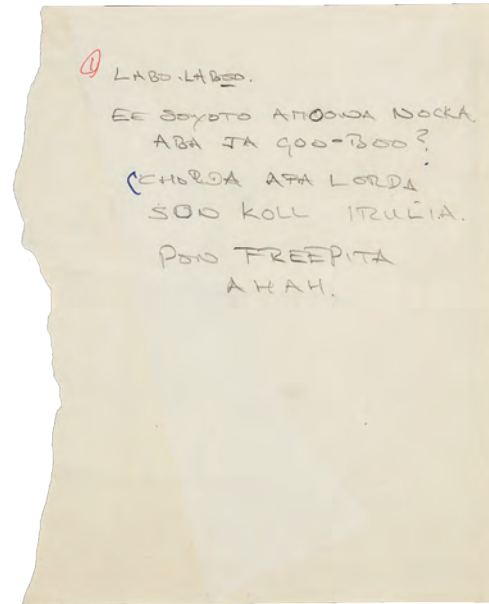 ①
LABO.LABOO.
EE SOYOTO AMOOWA NOCKA.
ABA JA GOO-BOO?
(CHORDA APA LORDA
SOO KOLL IRULIA.
PON FREEPITA
AHAH.